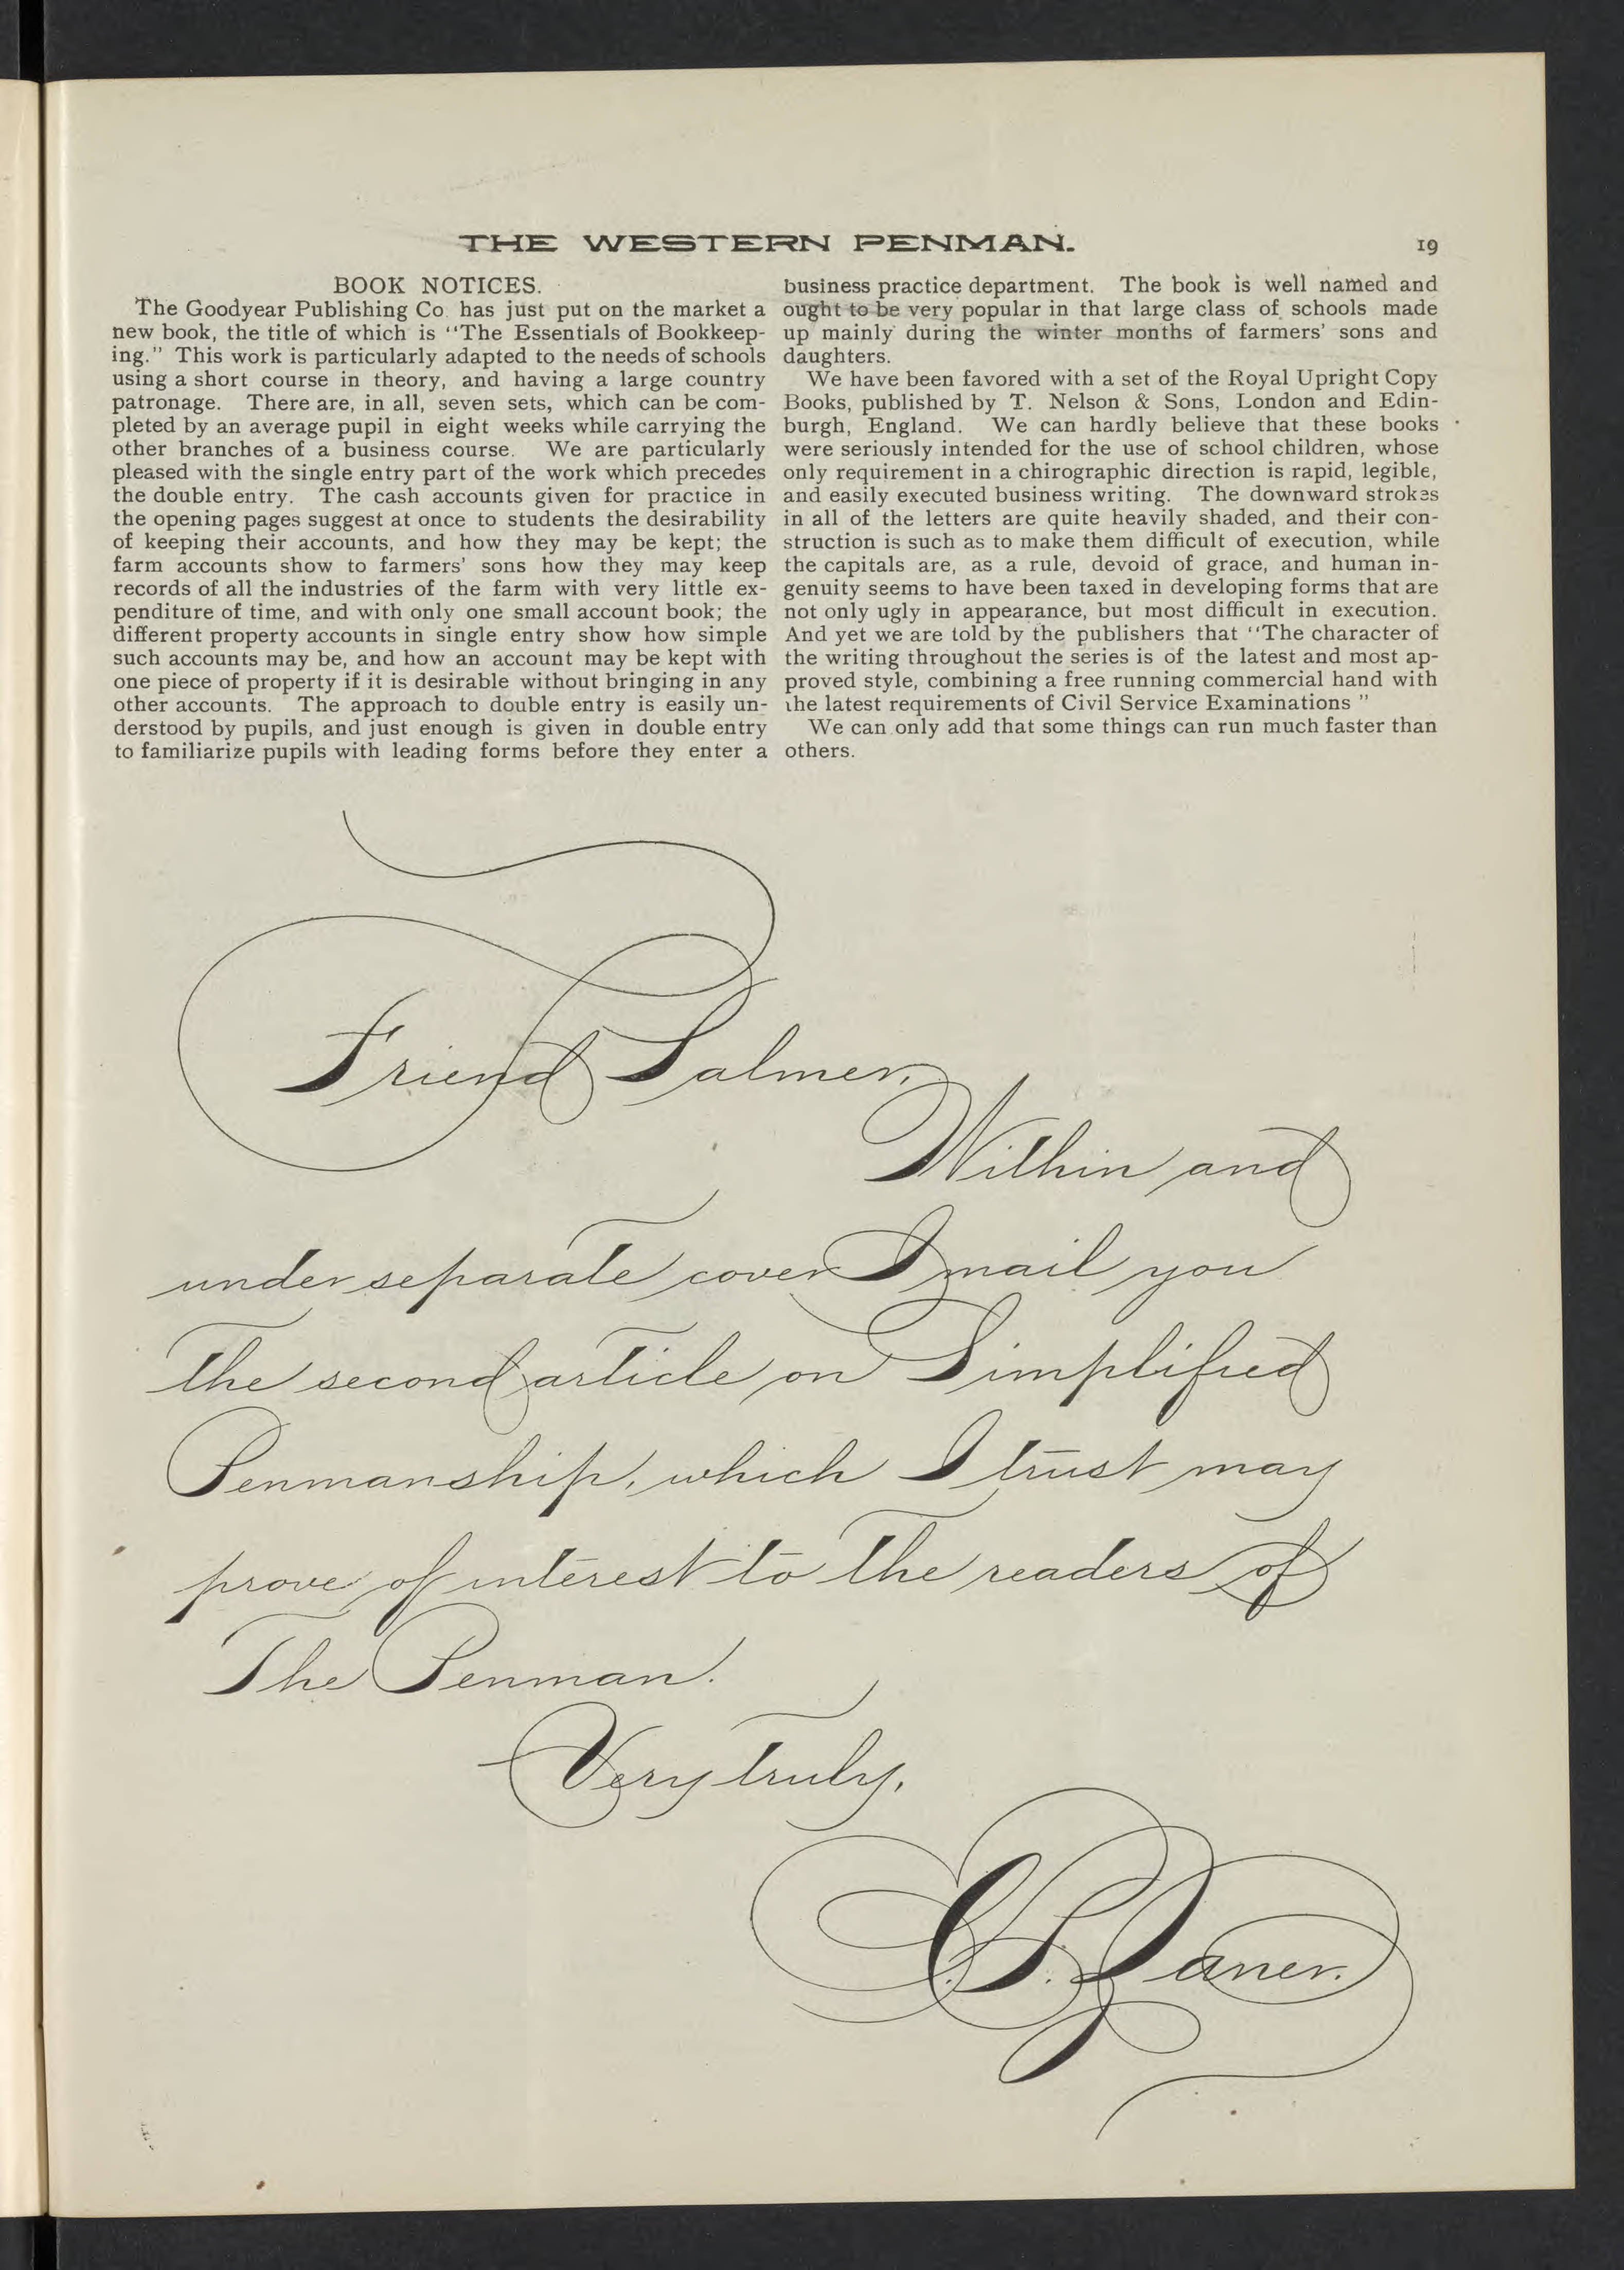 THE WESTERN PENMAN.
19
BOOK NOTICES.
The Goodyear Publishing Co. has just put on the market a
new book, the title of which is "The Essentials of Bookkeep-
ing." This work is particularly adapted to the needs of schools
using a short course in theory, and having a large country
patronage. There are, in all, seven sets, which can be com-
pleted by an average pupil in eight weeks while carrying the
other branches of a business course. We are particularly
pleased with the single entry part of the work which precedes
the double entry. The cash accounts given for practice in
the opening pages suggest at once to students the desirability
of keeping their accounts, and how they may be kept; the
farm accounts show to farmers' sons how they may keep
records of all the industries of the farm with very little ex-
penditure of time, and with only one small account book; the
different property accounts in single entry show how simple
such accounts may be, and how an account may be kept with
one piece of property if it is desirable without bringing in any
other accounts. The approach to double entry is easily un-
derstood by pupils, and just enough is given in double entry
to familiarize pupils with leading forms before they enter a
business practice department. The book is well named and
ought to be very popular in that large class of schools made
up mainly during the winter months of farmers' sons and
daughters.
We have been favored with a set of the Royal Upright Copy
Books, published by T. Nelson & Sons, London and Edin-
burgh, England. We can hardly believe that these books
were seriously intended for the use of school children, whose
only requirement in a chirographic direction is rapid, legible,
and easily executed business writing. The downward strokes
in all of the letters are quite heavily shaded, and their con-
struction is such as to make them difficult of execution, while
the capitals are, as a rule, devoid of grace, and human in-
genuity seems to have been taxed in developing forms that are
not only ugly in appearance, but most difficult in execution.
And yet we are told by the publishers that "The character of
the writing throughout the series is of the latest and most ap-
proved style, combining a free running commercial hand with
the latest requirements of Civil Service Examinations "
We can only add that some things can run much faster than
others.
Friend Palmer,
Within and
under separate cover I mail you
the second article on Simplified
Penmanship, which I trust may
prove of interest to the readers of
The Penman.
Very truly,
C. P. Zaner.